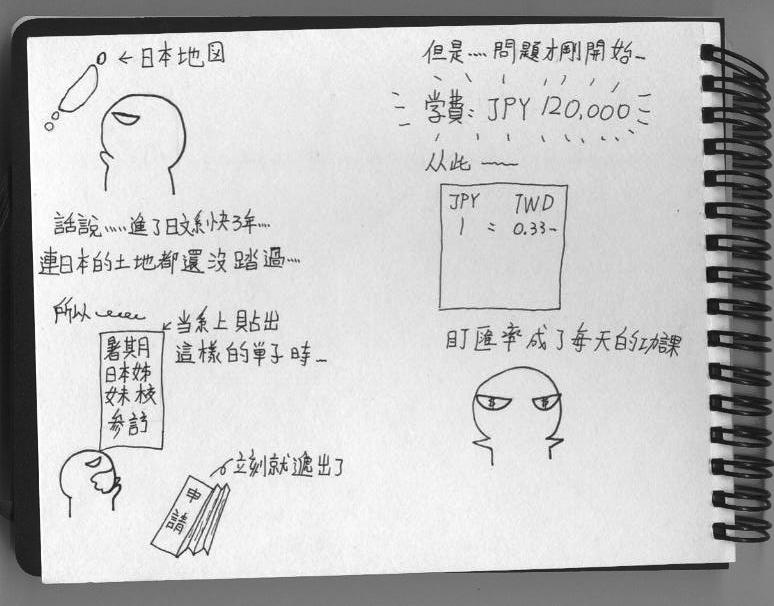 ←日本地図
話說……進了日文系快3年…
連日本的土地都還沒踏過…
所以
当系上貼出
這樣的單子時…
暑期月
日本姊
妹校
參訪
立刻就遞出了
申請
但是…問題才剛開始…
学費：JPY 120,000
从此
JPY TWD
1 = 0.33-
盯匯率成了每天的功課
$ $